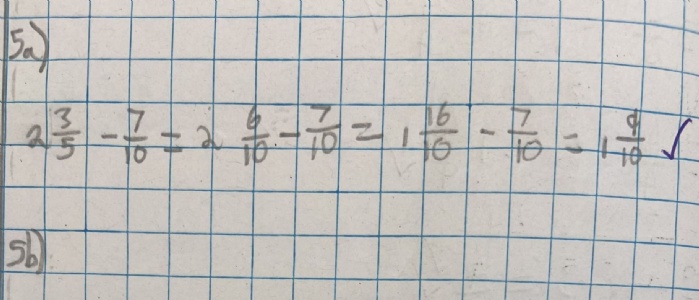 5a)
2 3/5 - 7/10 = 2 6/10 - 7/10 = 1 16/10 - 7/10 = 1 9/10 ✓
5b)